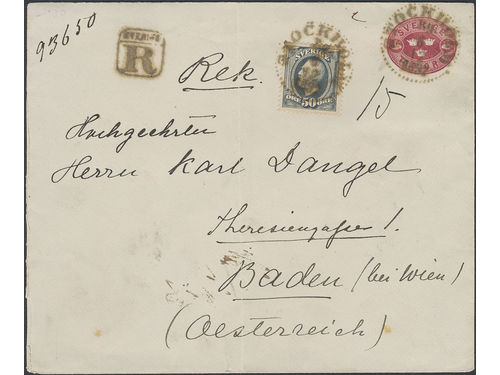 93650
SVERIGE
R
Rek.
STOCKHOLM
SVERIGE
ÖRE 50 ÖRE
STOCKHOLM
SVERIGE
15
Hochgeehrten
Herrn Karl Dangel
Theresiengasse 1.
Baden (bei Wien)
(Oesterreich)